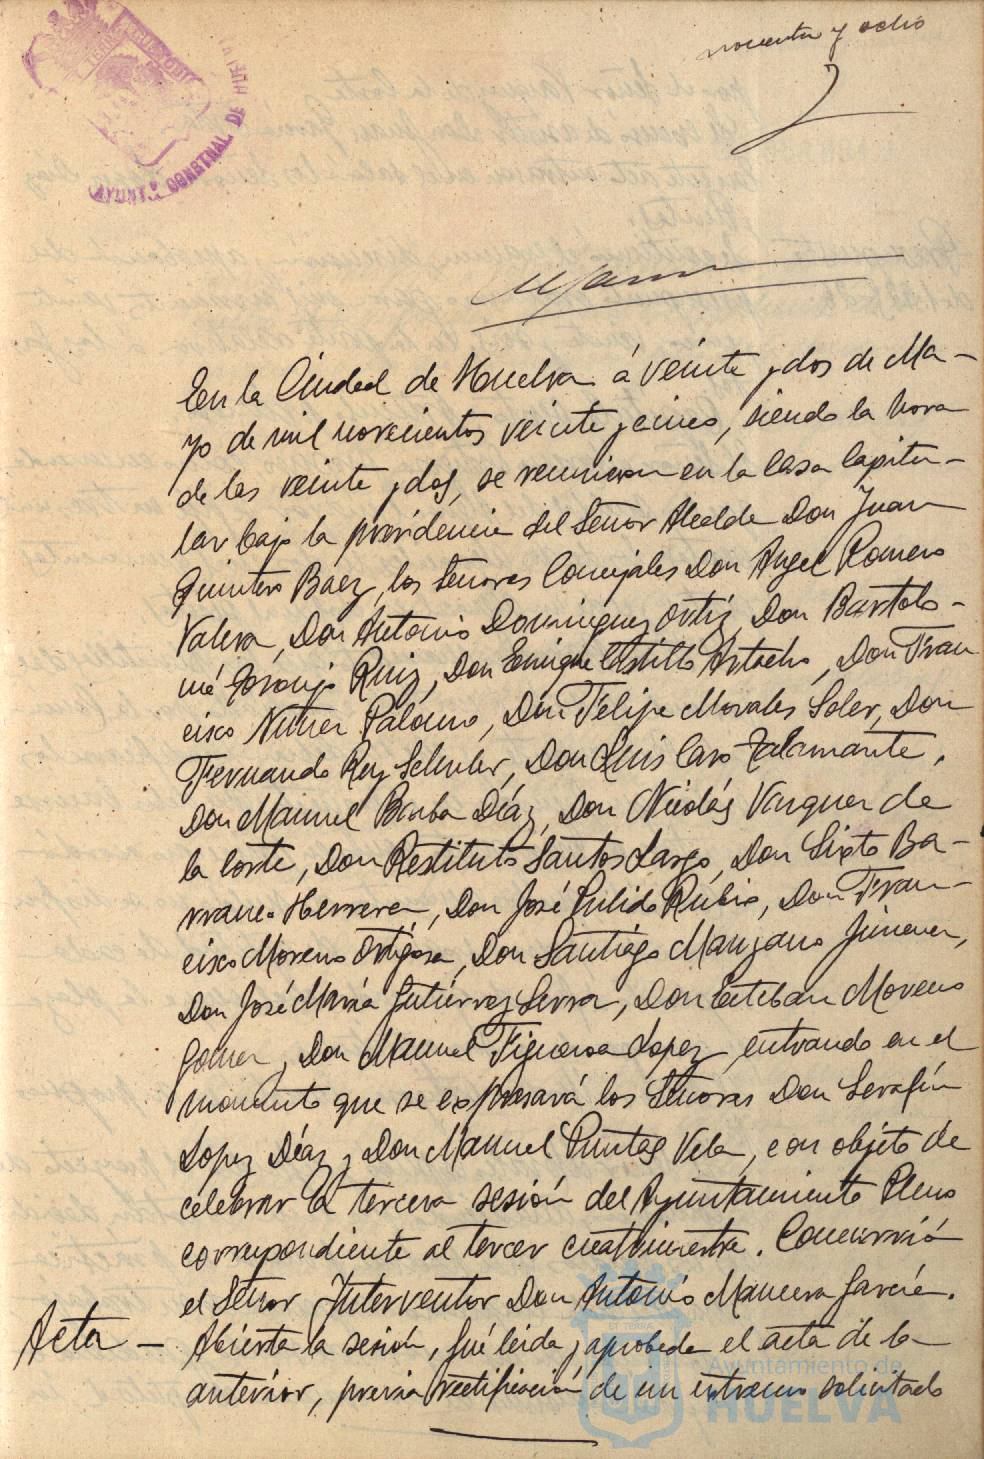 noventa y ocho
AYUNTº CONSTNAL DE HUELVA
En la Ciudad de Huelva á veinte y dos de Ma-
yo de mil novecientos veinte y cinco, siendo la hora
de las veinte y dos, se reunieron en la Casa Capitu-
lar bajo la presidencia del Señor Alcalde Don Juan
Quintero Baez, los Señores Concejales Don Angel Romero
Valera, Don Antonio Dominguez Ortiz, Don Bartolo-
mé Naranjo Ruiz, Don Enrique Castillo Artacho, Don Fran
cisco Nuñez Palomo, Don Felipe Morales Soler, Don
Fernando Rey Schuler, Don Luis Caro Talamante,
Don Manuel Barba Díaz, Don Nicolás Vazquez de
la Corte, Don Restituto Santos Largo, Don Sixto Ba-
rranco Herrera, Don José Pulido Rubio, Don Fran-
cisco Moreno Ortigosa, Don Santiago Manzano Jimenez,
Don José María Gutiérrez Serra, Don Esteban Moreno
Gomez, Don Manuel Figueroa Lopez, entrando en el
momento que se expresará los Señores Don Serafín
Lopez Díaz y Don Manuel Puntas Vela, con objeto de
celebrar la tercera sesión del Ayuntamiento Pleno
correspondiente al tercer cuatrimestre. Concurrió
el Señor Interventor Don Antonio Mancera García.
Acta — Abierta la sesión, fué leida y aprobada el acta de la
anterior, previa rectificación de un extremo solicitado
Ayuntamiento de
HUELVA